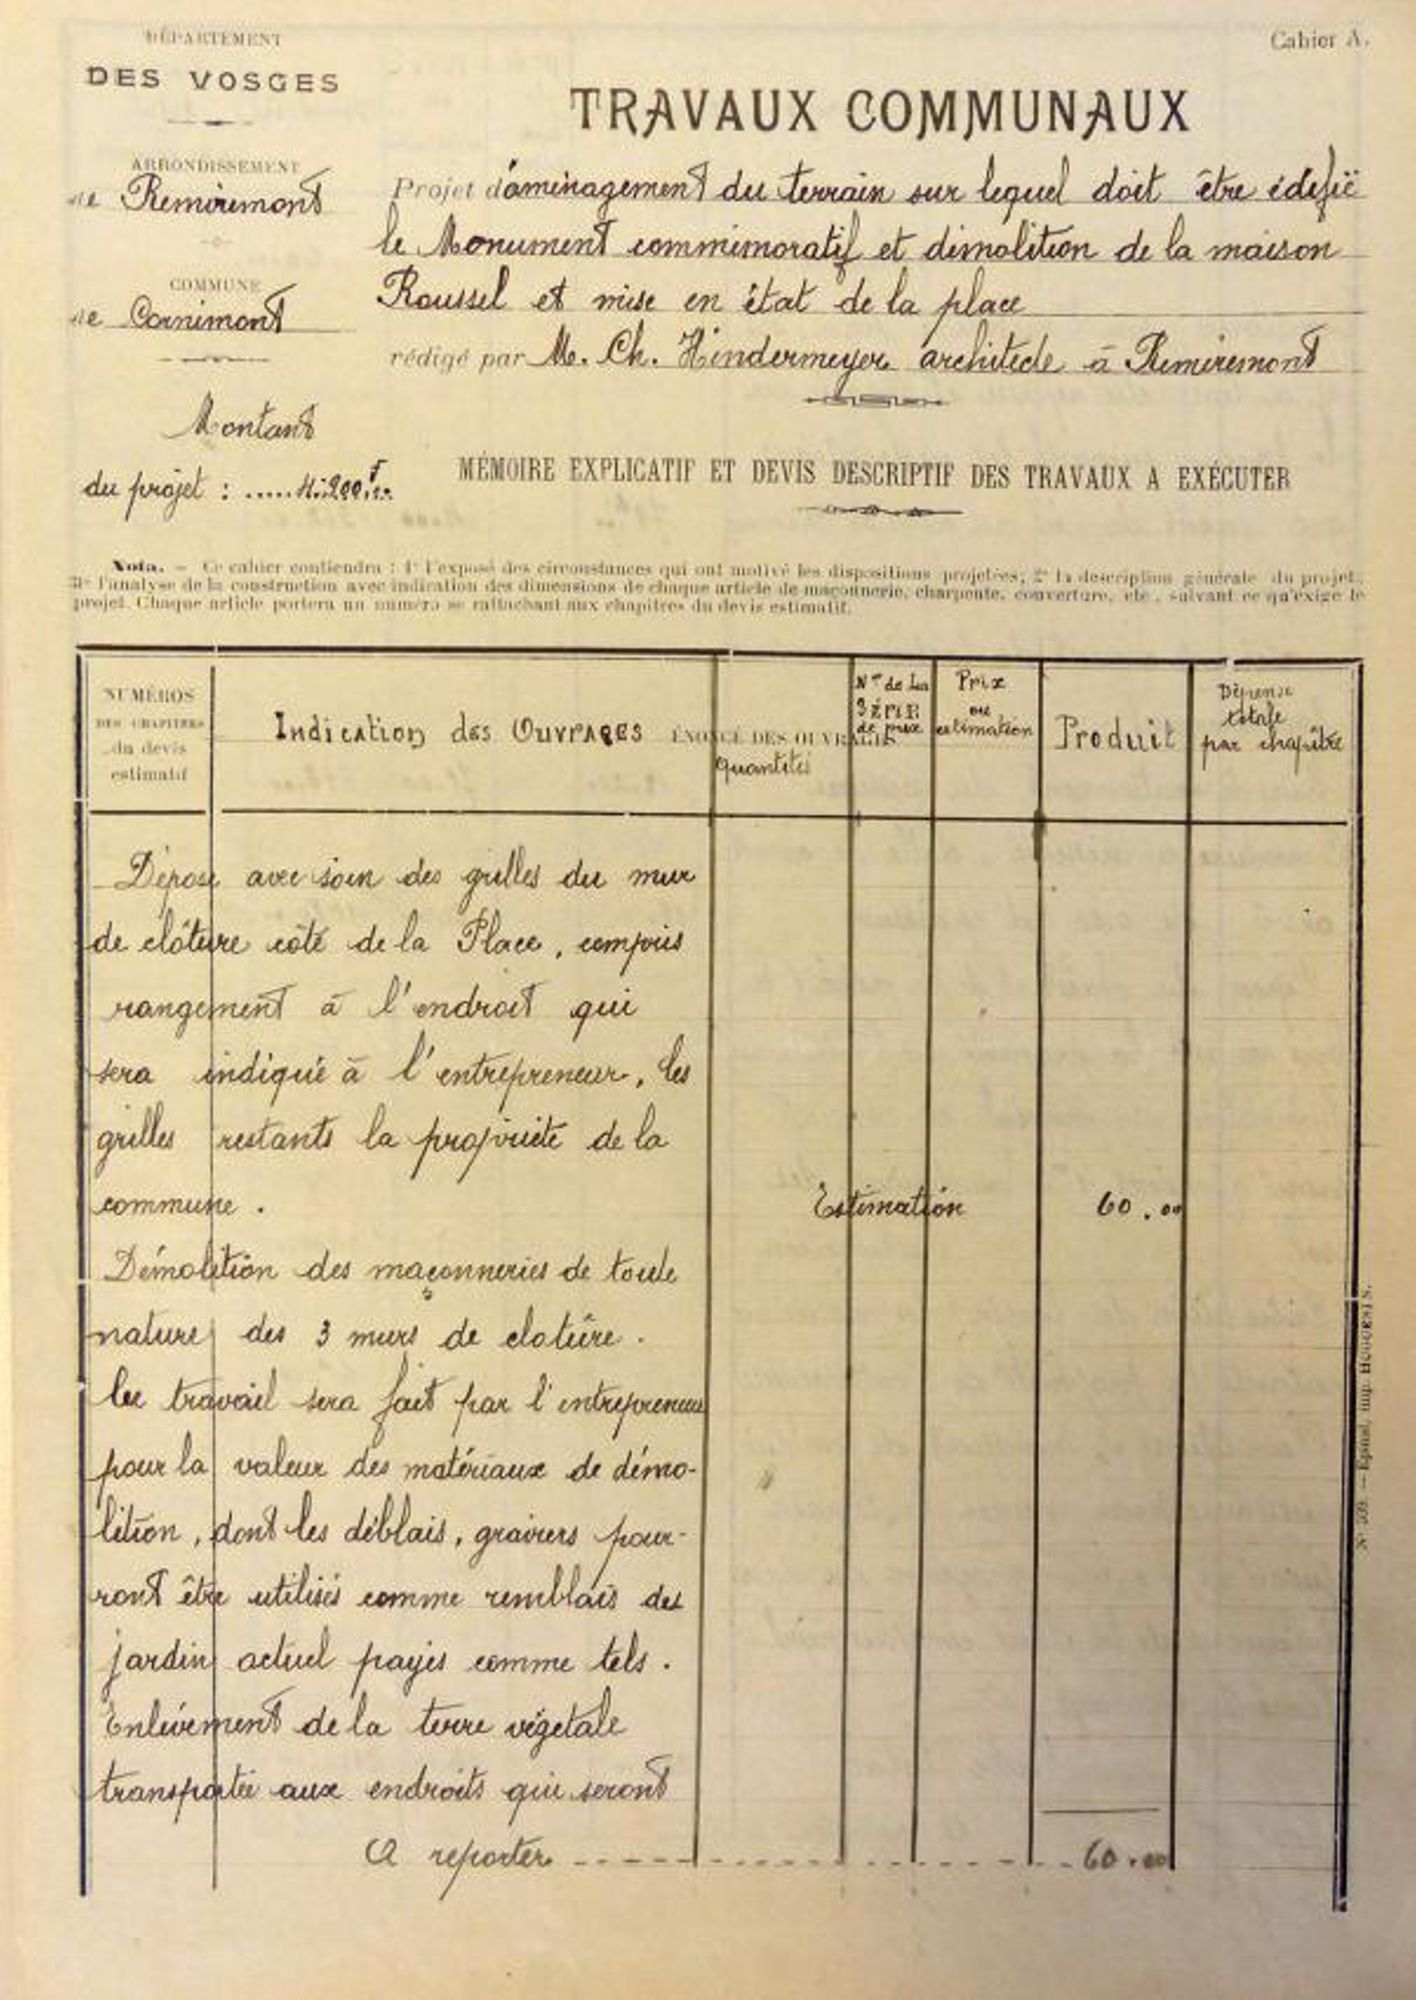 DÉPARTEMENT
DES VOSGES
Cahier A.
TRAVAUX COMMUNAUX
ARRONDISSEMENT
de Remiremont
COMMUNE
de Cornimont
Projet d'aménagement du terrain sur lequel doit être édifié
le Monument commémoratif et démolition de la maison
Roussel et mise en état de la place
rédigé par M. Ch. Hindermeyer architecte à Remiremont
Montant
du projet : ..... 4.200,F00
MÉMOIRE EXPLICATIF ET DEVIS DESCRIPTIF DES TRAVAUX A EXÉCUTER
Nota. — Ce cahier contiendra : 1° l'exposé des circonstances qui ont motivé les dispositions projetées; 2° la description générale du projet;
3° l'analyse de la construction avec indication des dimensions de chaque article de maçonnerie, charpente, couverture, etc., suivant ce qu'exige le
projet. Chaque article portera un numéro se rattachant aux chapitres du devis estimatif.
NUMÉROS
DES CHAPITRES
du devis
estimatif
Indication des Ouvrages
ÉNONCÉ DES OUVRAGES
Quantités
Nos de la
SÉRIE
de prix
Prix
ou
estimation
Produit
Dépense
totale
par chapître
Dépose avec soin des grilles du mur
de clôture côté de la Place, compris
rangement à l'endroit qui
sera indiqué à l'entrepreneur, les
grilles restants la propriété de la
commune. Estimation 60.00
Démolition des maçonneries de toute
nature des 3 murs de cloture.
Ce travail sera fait par l'entrepreneur
pour la valeur des matériaux de démo-
lition, dont les déblais, graviers pour-
ront être utilisés comme remblais des
jardin actuel payés comme tels.
Enlèvement de la terre végetale
transportée aux endroits qui seront
A reporter 60.00
N° 509. — Epinal, imp. HUGUENIN.